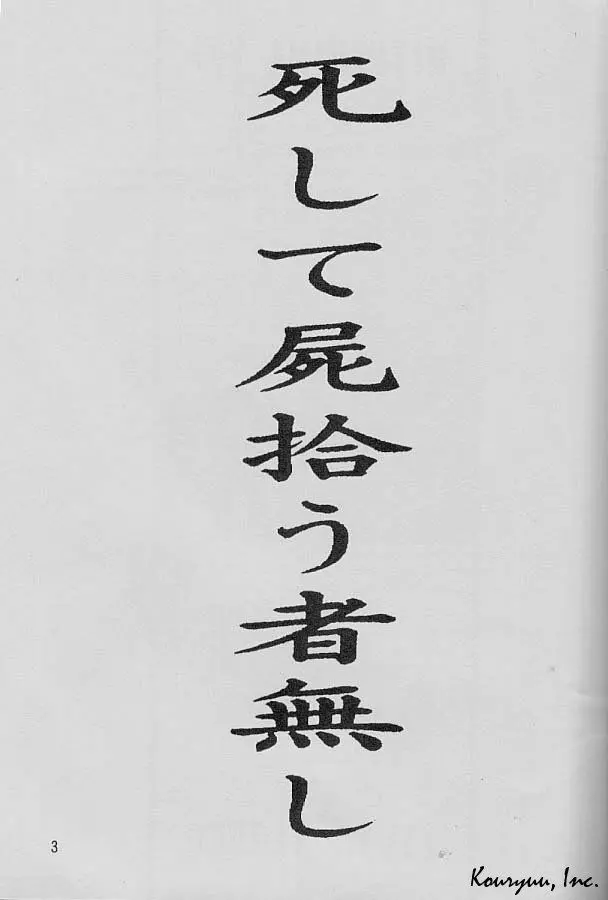 死して屍拾う者無し
3
Kouryuu, Inc.